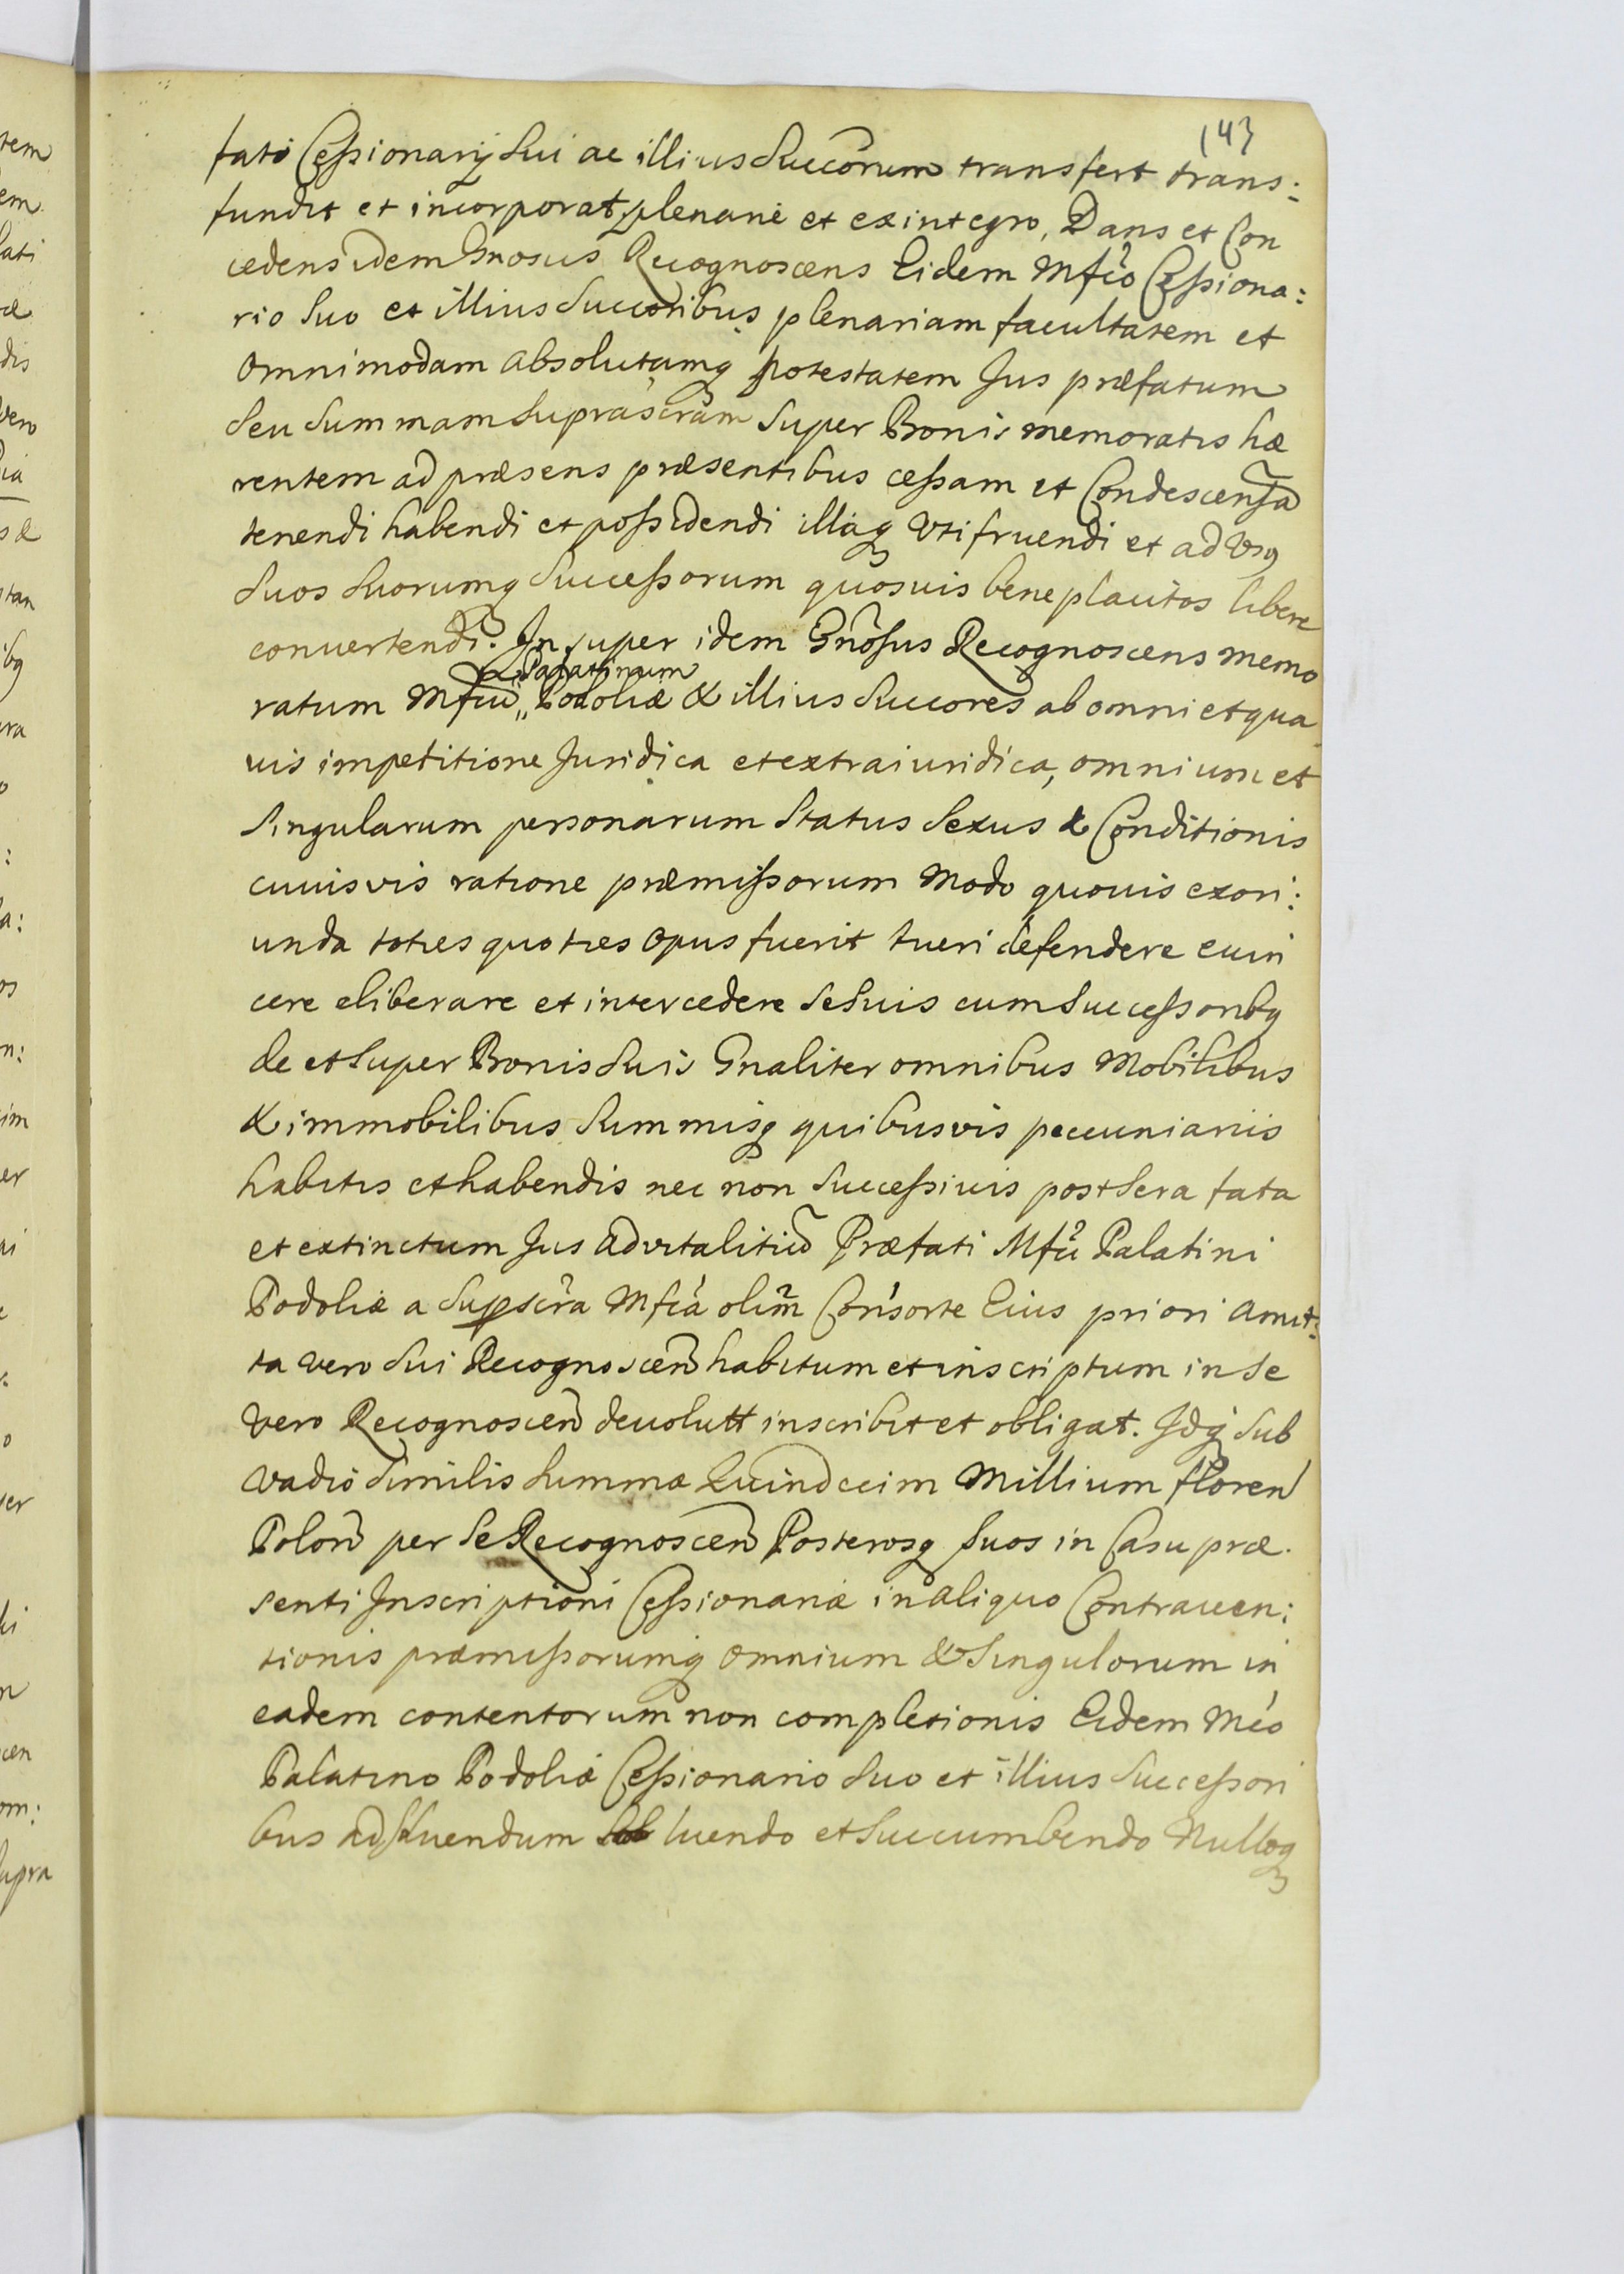 143
fati Cessionarij Sui ac illius Succorum transfert trans:
fundit et incorporat plenarie et ex integro, Dans et Con
cedens idem Gnosus Recognoscens Eidem Mfco Cessiona:
rio Suo et illius Succoribus plenariam facultatem et
omnimodam absolutamq potestatem Jus præfatum
Seu Summam Suprascram Super Bonis memoratis hæ
rentem ad præsens præsentibus cessam et Condescensa
tenendi habendi et possidendi illaq Vtifruendi et ad Vsq
Suos Suorumq Successorum quosuis beneplacitos libere
conuertendi. Insuper idem Gnosus Recognoscens memo
Palatinum
ratum Mfcu Podoliæ & illius Succores ab omni et qua
uis impetitione Juridica et extraiuridica, omnium et
Singularum personarum Status Sexus & Conditionis
cuiusvis ratione præmissorum Modo quouis exori:
unda toties quoties opus fuerit tueri defendere euin
cere eliberare et intercedere Se Suis cum Successoribq
de et Super Bonis Suis Gnaliter omnibus Mobilibus
& immobilibus Summisq quibusvis peccuniariis
habitis et habendis nec non Successiuis post Sera fata
et extinctum Jus advitalitiu Præfati Mfci Palatini
Podoliæ a Supscra Mfca olim Consorte Eius priori Amit:
ta vero Sui Recognoscen habitum et inscriptum in Se
Vero Recognoscen deuolutt inscribit et obligat. Idq Sub
Vadio Similis Summæ Quindecim Millium floren
Polon per Se Recognoscen Posterosq Suos in Casu præ.
senti Inscriptioni Cessionariæ in aliquo Contrauen:
tionis præmissorumq omnium & Singulorum in
eadem contentorum non completionis Eidem Mco
Palatino Podoliæ Cessionario Suo et illius Successori
bus ad luendum luendo et Succumbendo Nulloq